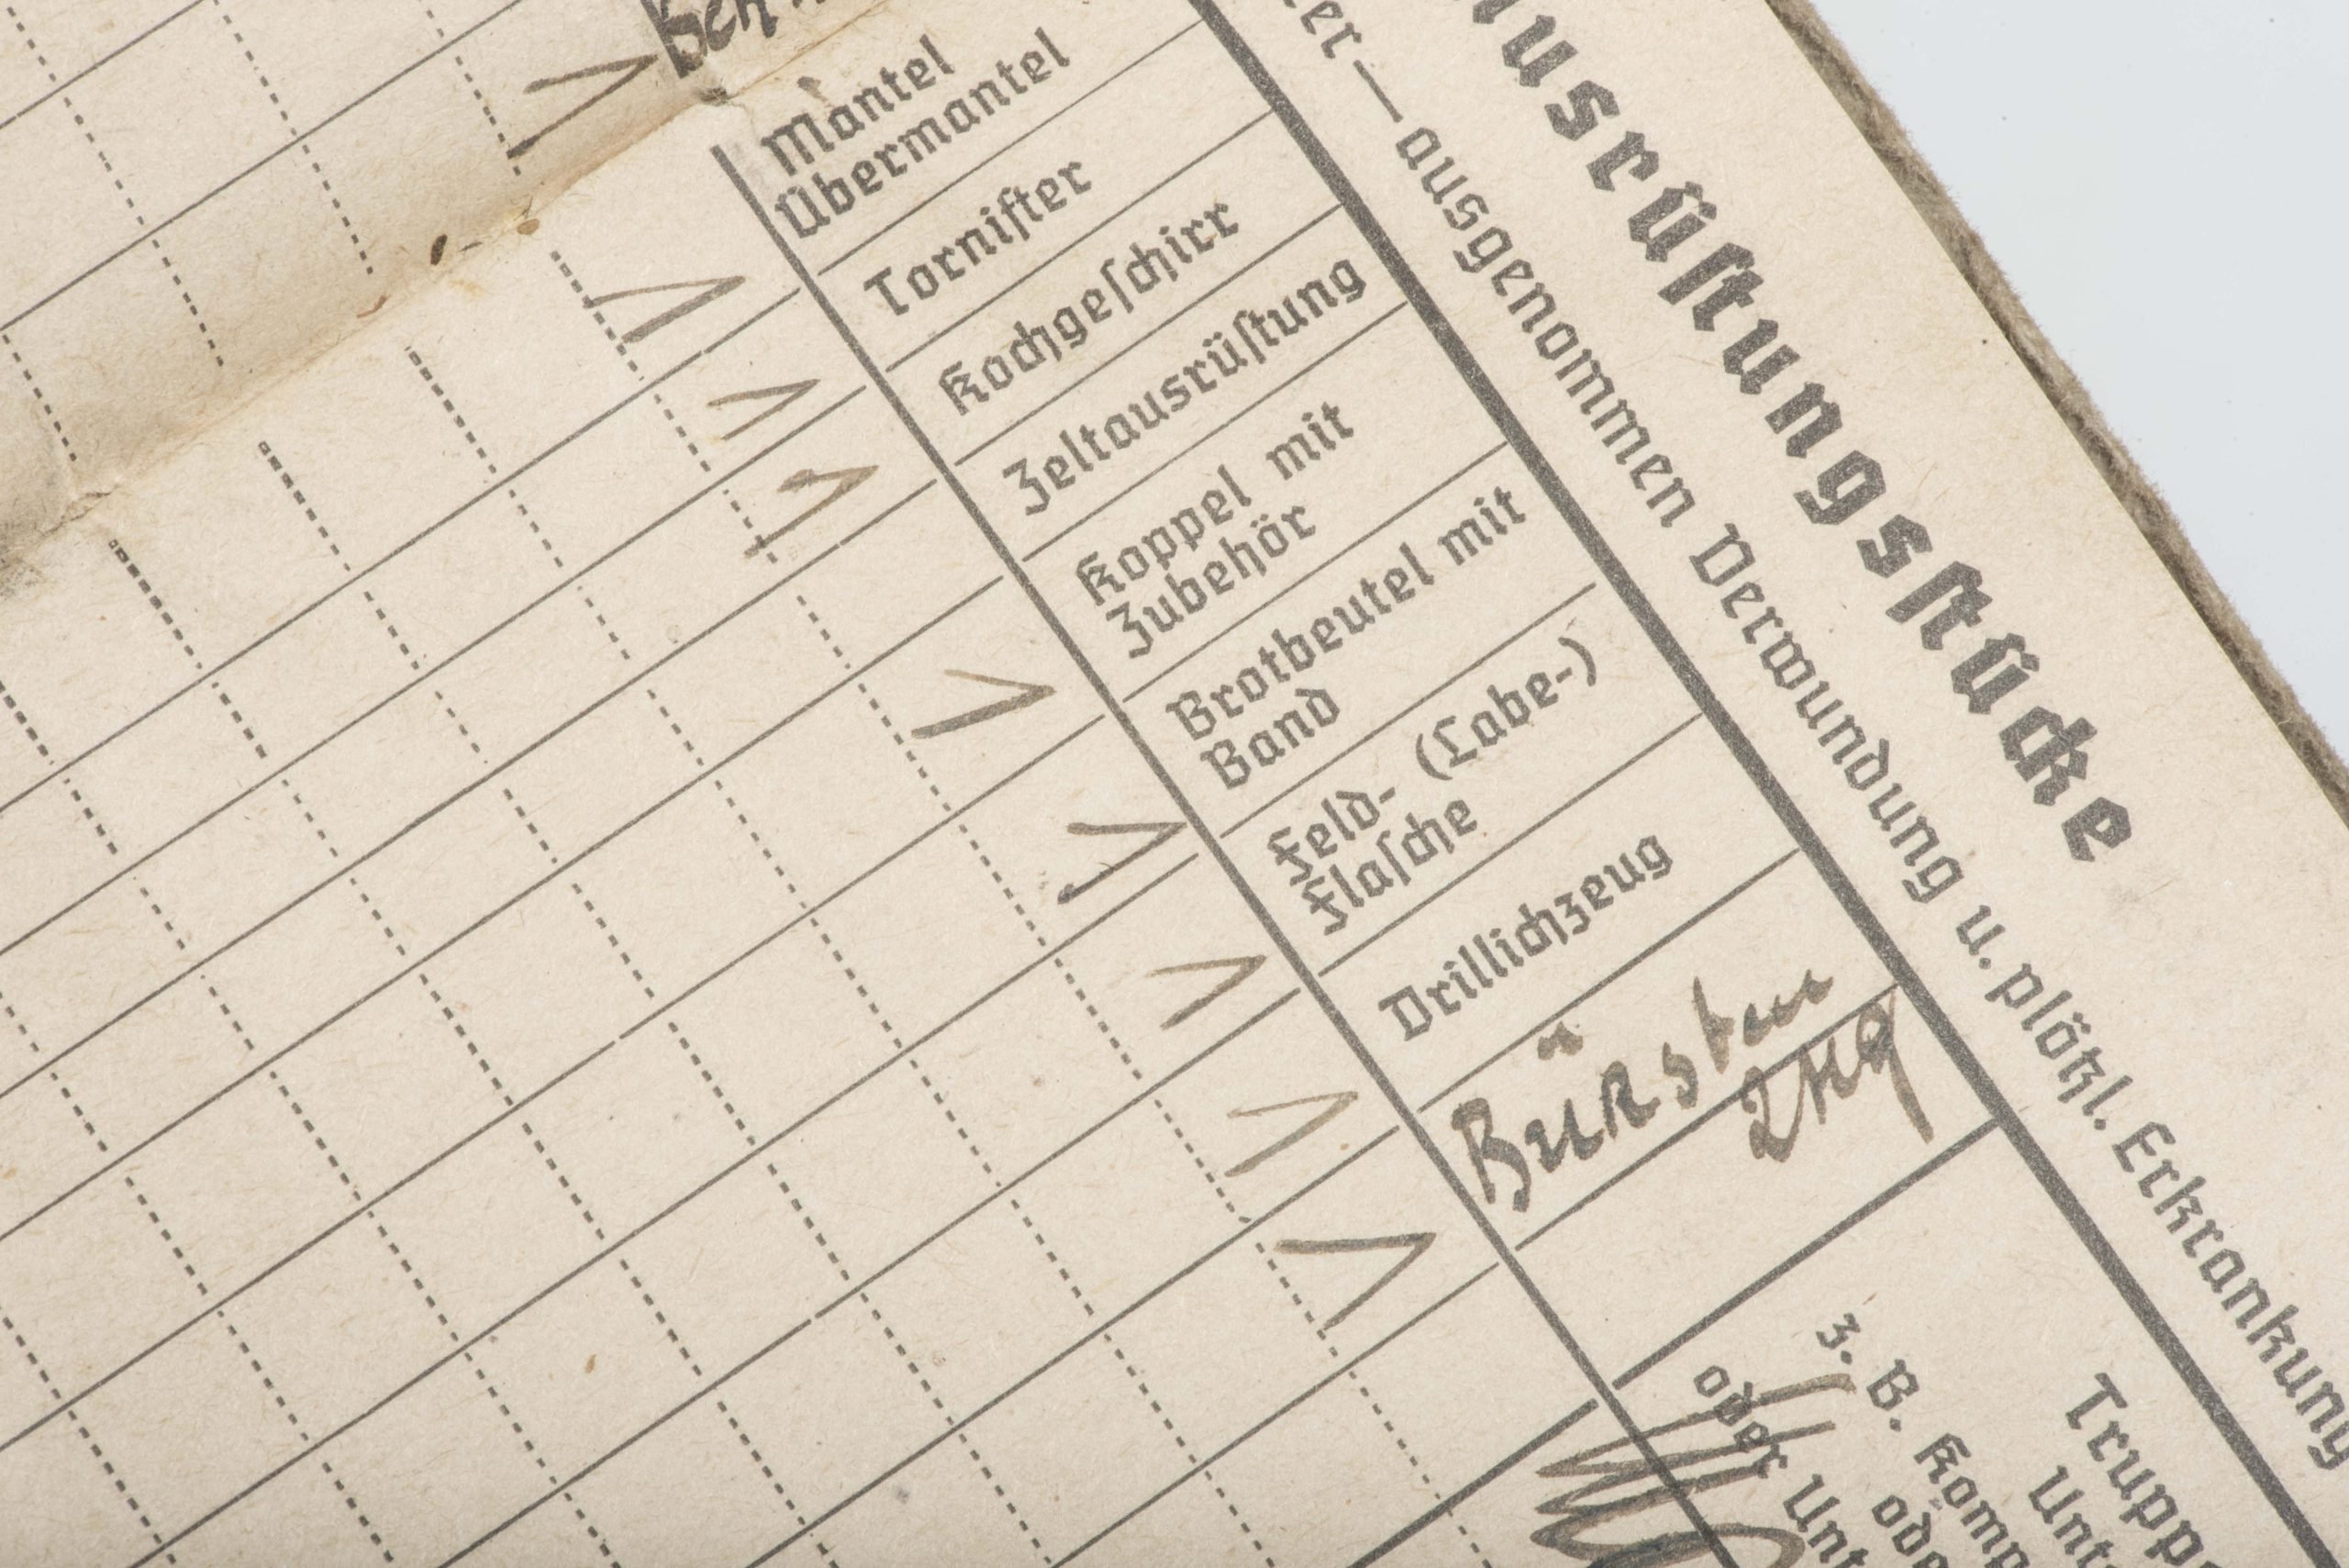 usrüstungsstücke
er — ausgenommen Verwundung u. plötzl. Erkrankung
Mantel
Übermantel
Tornister
Kochgeschirr
Zeltausrüstung
Koppel mit
Zubehör
Brotbeutel mit
Band
Feld- (Labe-)
Flasche
Drillichzeug
Bürsten
Trupp
Unt
z. B. Komp
ode
oder Unt
1
1
1
1
1
1
1
1
1